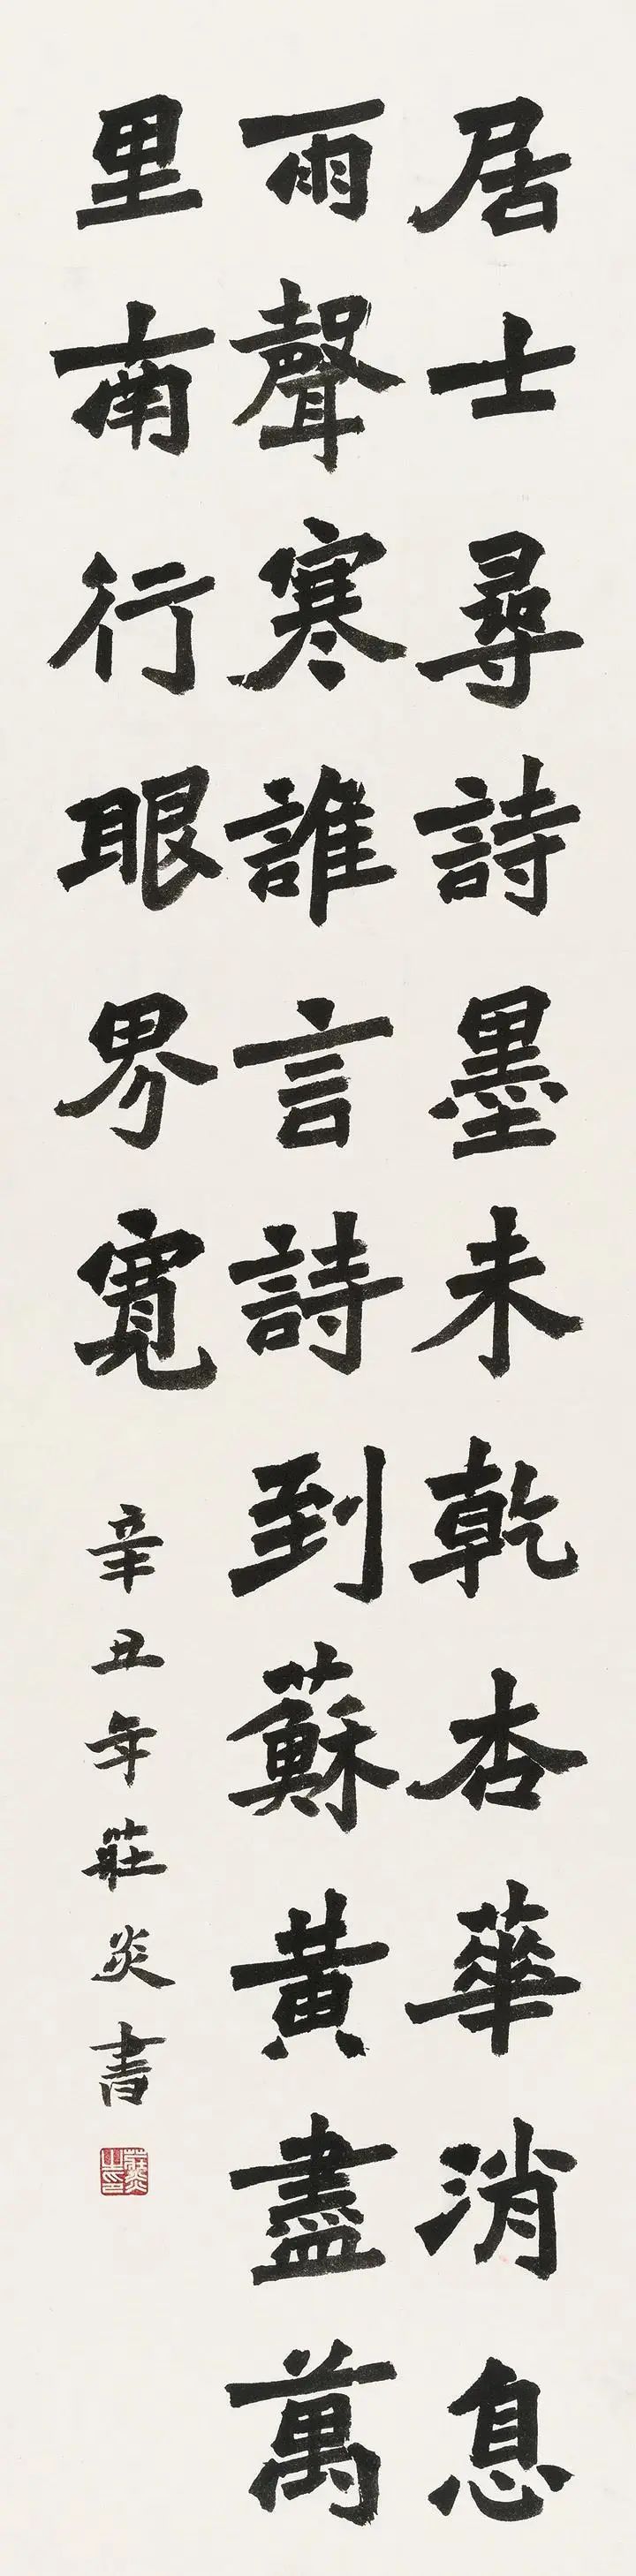 居士尋詩墨未乾杏華消息
雨聲寒誰言詩到蘇黃盡萬
里南行眼界寬
辛丑年莊炎書